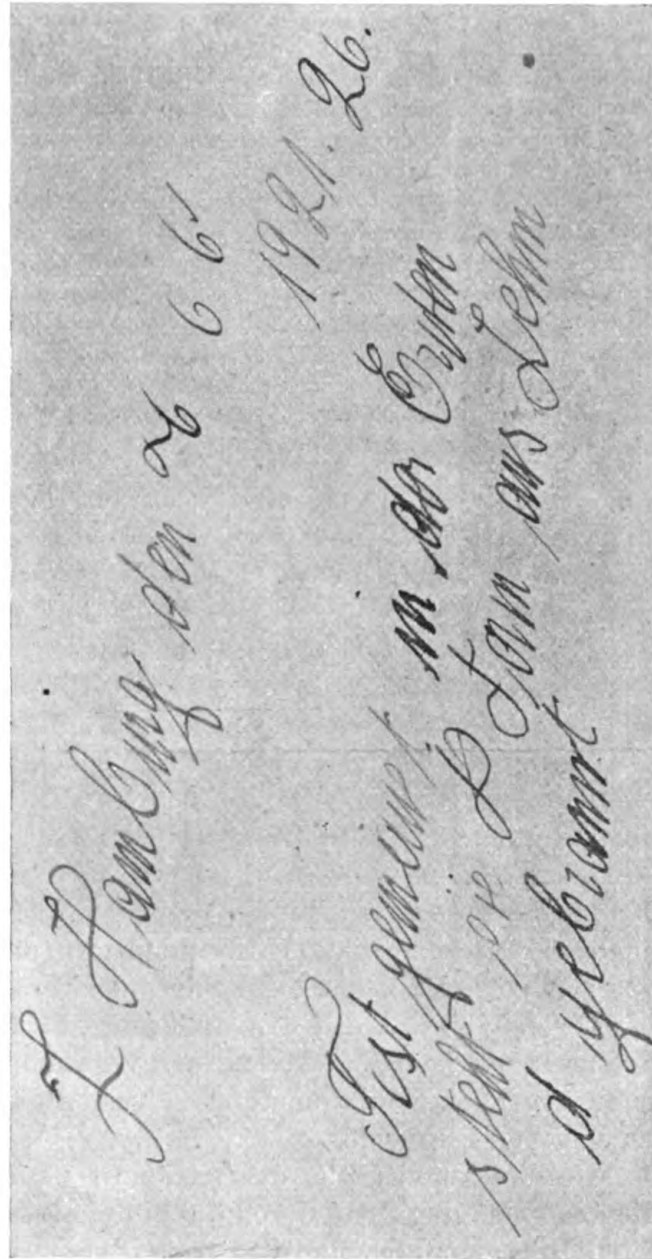 I Hamburg den 26 6'
1921. 26.
Fest gemeuert in der Eruten
steht die L Fom aus Lehm
d gebrannt